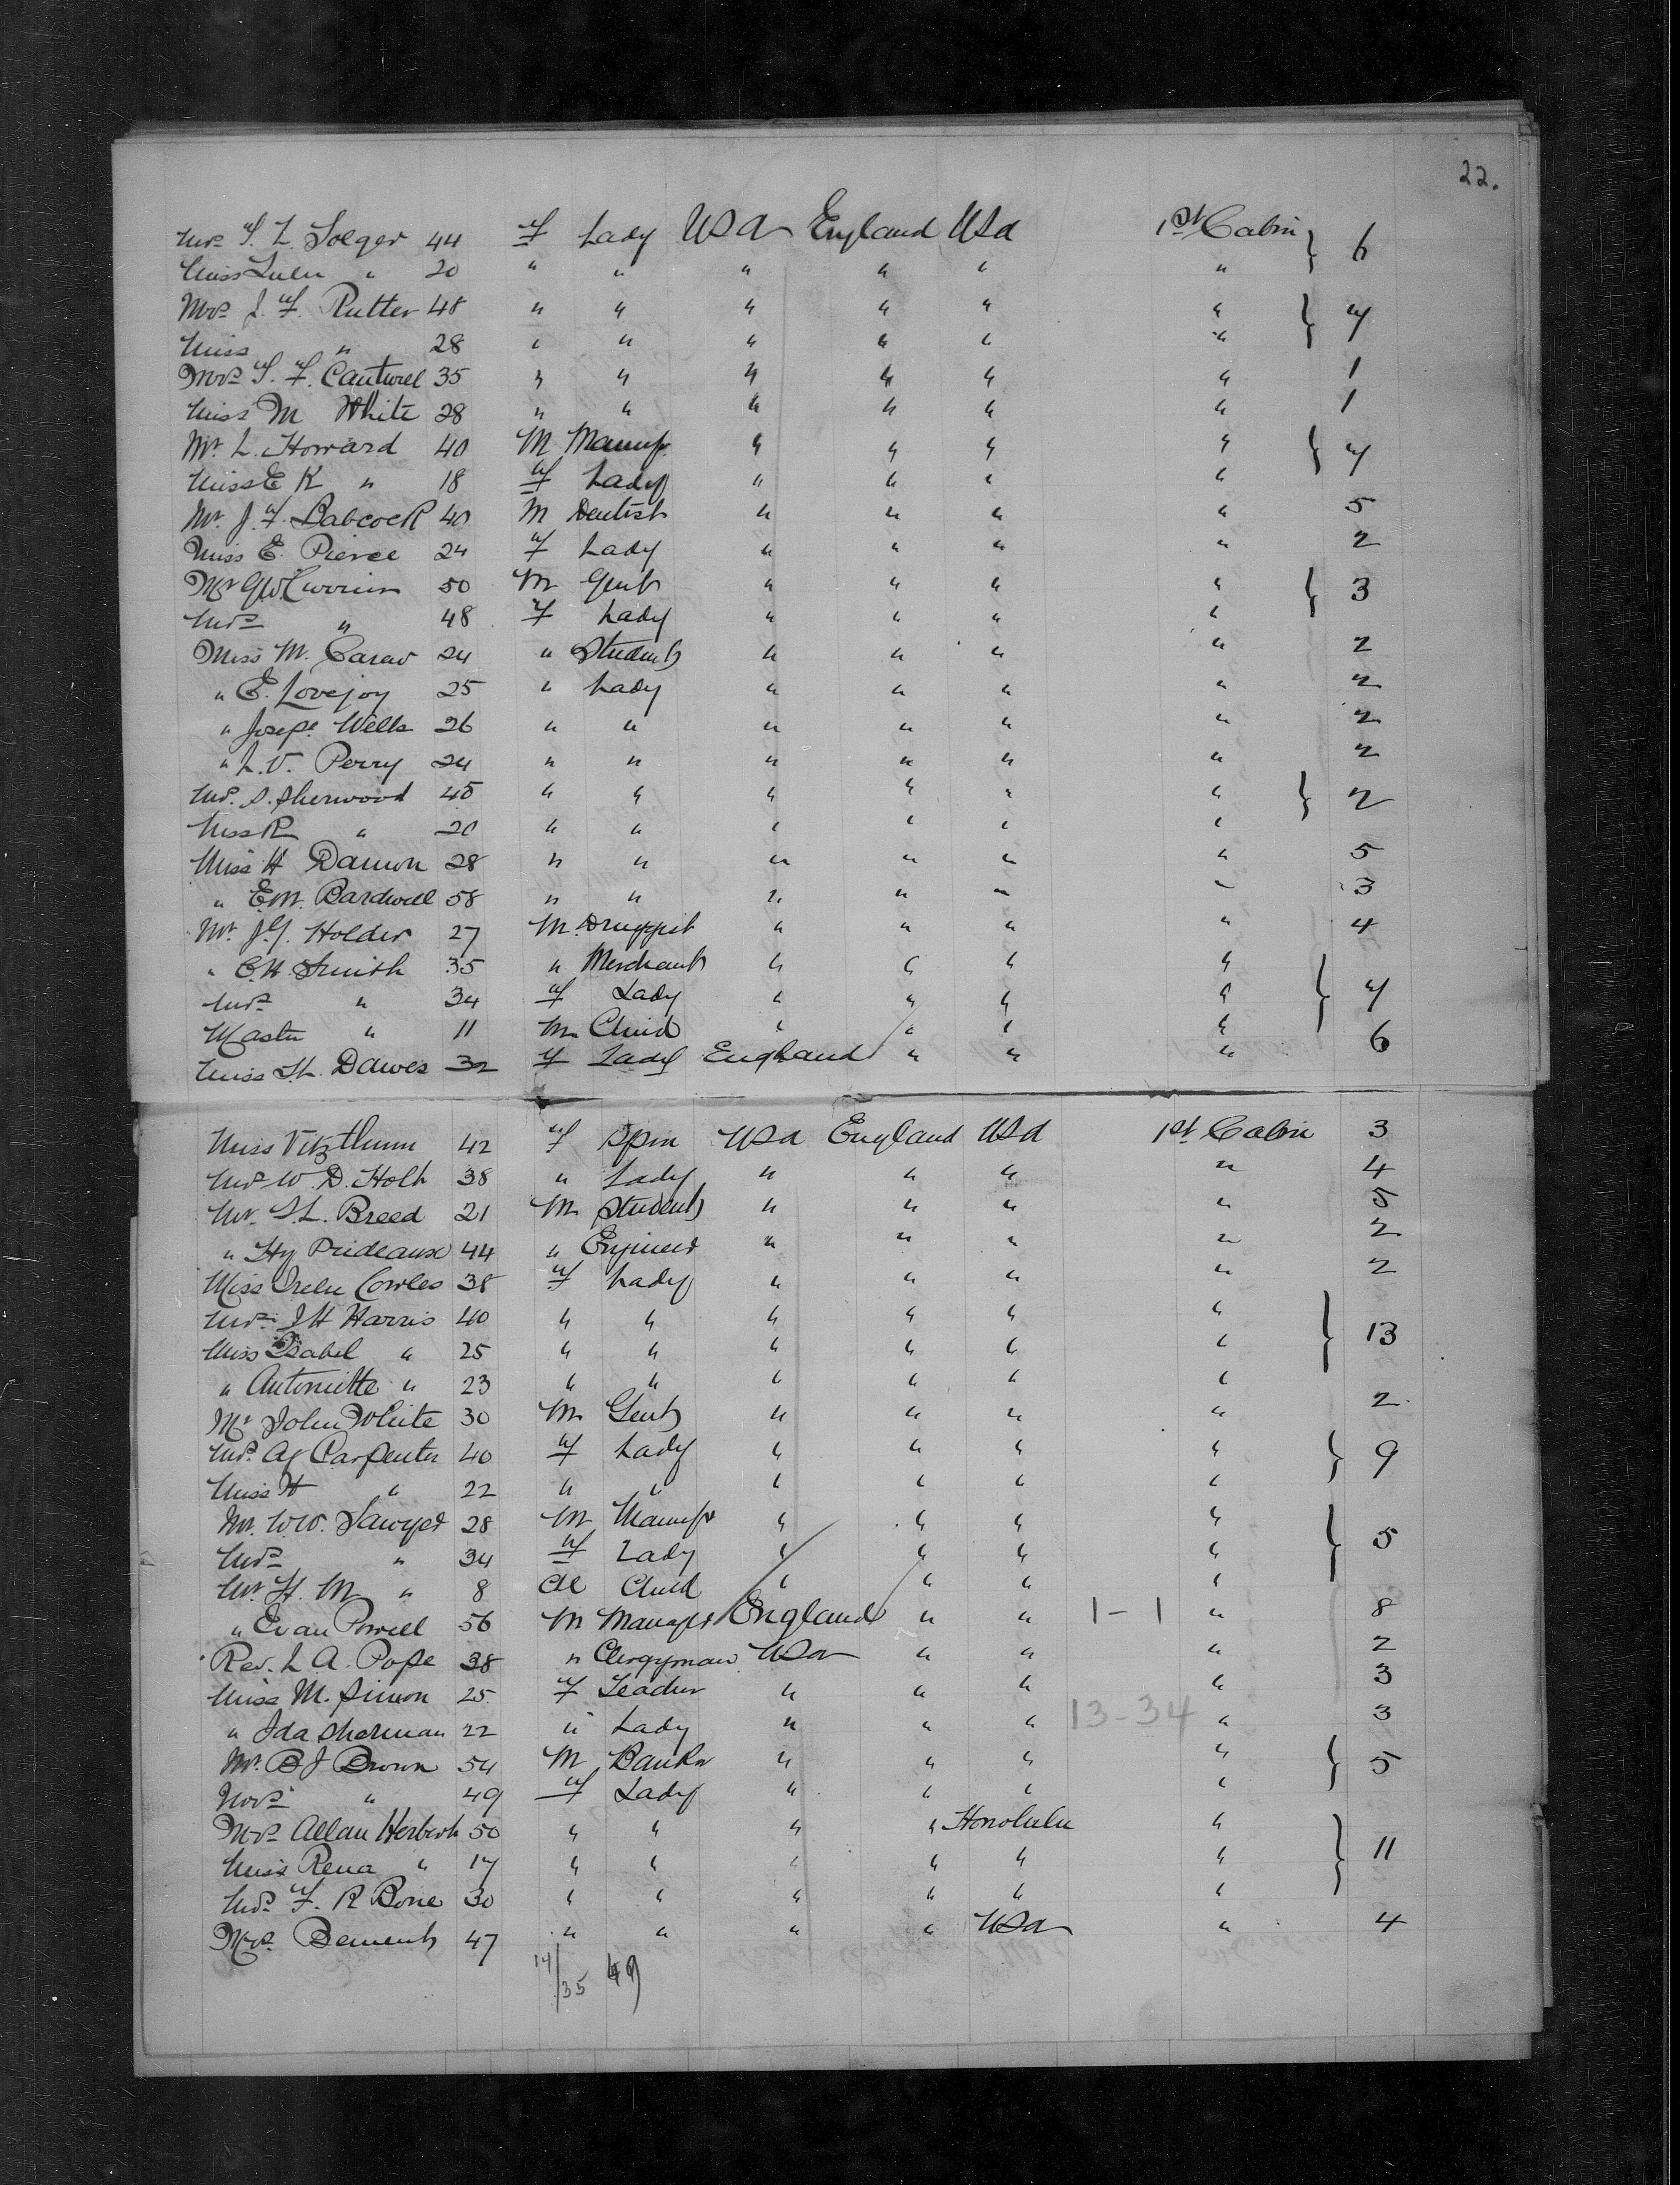 22.
Mrs S. L. Soeger 44 F Lady USA England USA 1st Cabin } 6
Miss Lulu " 20 " " " " " "
Mrs J. F. Rutter 48 " " " " " " } 7
Miss " 28 " " " " " "
Mrs S. F. Cantwell 35 " " " " " " 1
Miss M White 28 " " " " " " 1
Mr L. Howard 40 M Manuf. " " " " } 7
Miss E K " 18 F Lady " " " "
Mr J. F. Babcock 40 M Dentist " " " " 5
Miss E. Pierce 24 F Lady " " " " 2
Mr G W 50 M Gent " " " " } 3
Mrs " 48 F Lady " " " "
Miss M. 24 " Student " " " " 2
" E. Lovejoy 25 " Lady " " " " 2
" Josep. Wells 26 " " " " " " 2
" L. V. Perry 24 " " " " " " 2
Mrs. S. Sherwood 45 " " " " " " } 2
Miss R " 20 " " " " " "
Miss H Damon 28 " " " " " " 5
" E. M. Bardwell 58 " " " " " " 3
Mr. J. G. Holder 27 M Druggist " " " " 4
" C. H. Smith 35 " Merchant " " " " } 7
Mrs " 34 F Lady " " " "
Master " 11 M Child " " " "
Miss H. Dawes 32 F Lady England " " " 6
Miss Vitzthum 42 F Spin USA England USA 1st Cabin 3
Mrs W. D. Holt 38 " Lady " " " " 4
Mr. S. L. Breed 21 M Student " " " " 5
" Hy Prideaux 44 " Engineer " " " " 2
Miss Cowles 38 F Lady " " " " 2
Mrs J H Harris 40 " " " " " " } 13
Miss Isabel " 25 " " " " " "
" Antoinette " 23 " " " " " "
Mr John White 30 M Gent " " " " 2
Mrs. Carpenter 40 F Lady " " " " } 9
Miss H " 22 " " " " " "
Mr. W. W. Sawyer 28 M Manufr " " " " } 5
Mrs " 34 F Lady " " " "
Mr. H. M " 8 M Child " " " "
" Evan Powell 56 M Manager England " " 1 - 1 " 8
Rev. L. A. Pope 38 " Clergyman USA " " " 2
Miss M. Simon 25 F Teacher " " " " 3
" Ida Sherman 22 " Lady " " " 13 - 34 " 3
Mr. B J Brown 54 M Banker " " " " } 5
Mrs " 49 F Lady " " " "
Mrs Allan Herbert 50 " " " " Honolulu " } 11
Miss Rena " 17 " " " " " "
Mrs F. R Bone 30 " " " " " "
Mrs. Dement 47 " " " " USA " 4
14/35 49